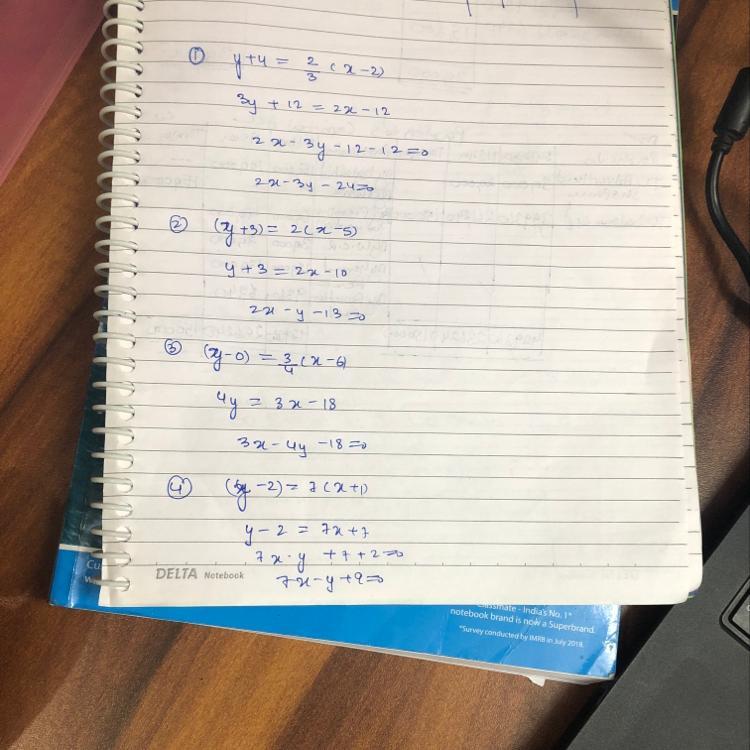 ① y+4 = 2/3 (x-2)
3y + 12 = 2x - 12
2x - 3y - 12 - 12 = 0
2x - 3y - 24 = 0
② (y+3) = 2(x-5)
y + 3 = 2x - 10
2x - y - 13 = 0
③ (y-0) = 3/4 (x-6)
4y = 3x - 18
3x - 4y - 18 = 0
④ (y-2) = 7(x+1)
y - 2 = 7x + 7
7x - y + 7 + 2 = 0
7x - y + 9 = 0
DELTA Notebook
Classmate - India's No. 1*
notebook brand is now a Superbrand.
*Survey conducted by IMRB in July 2018.